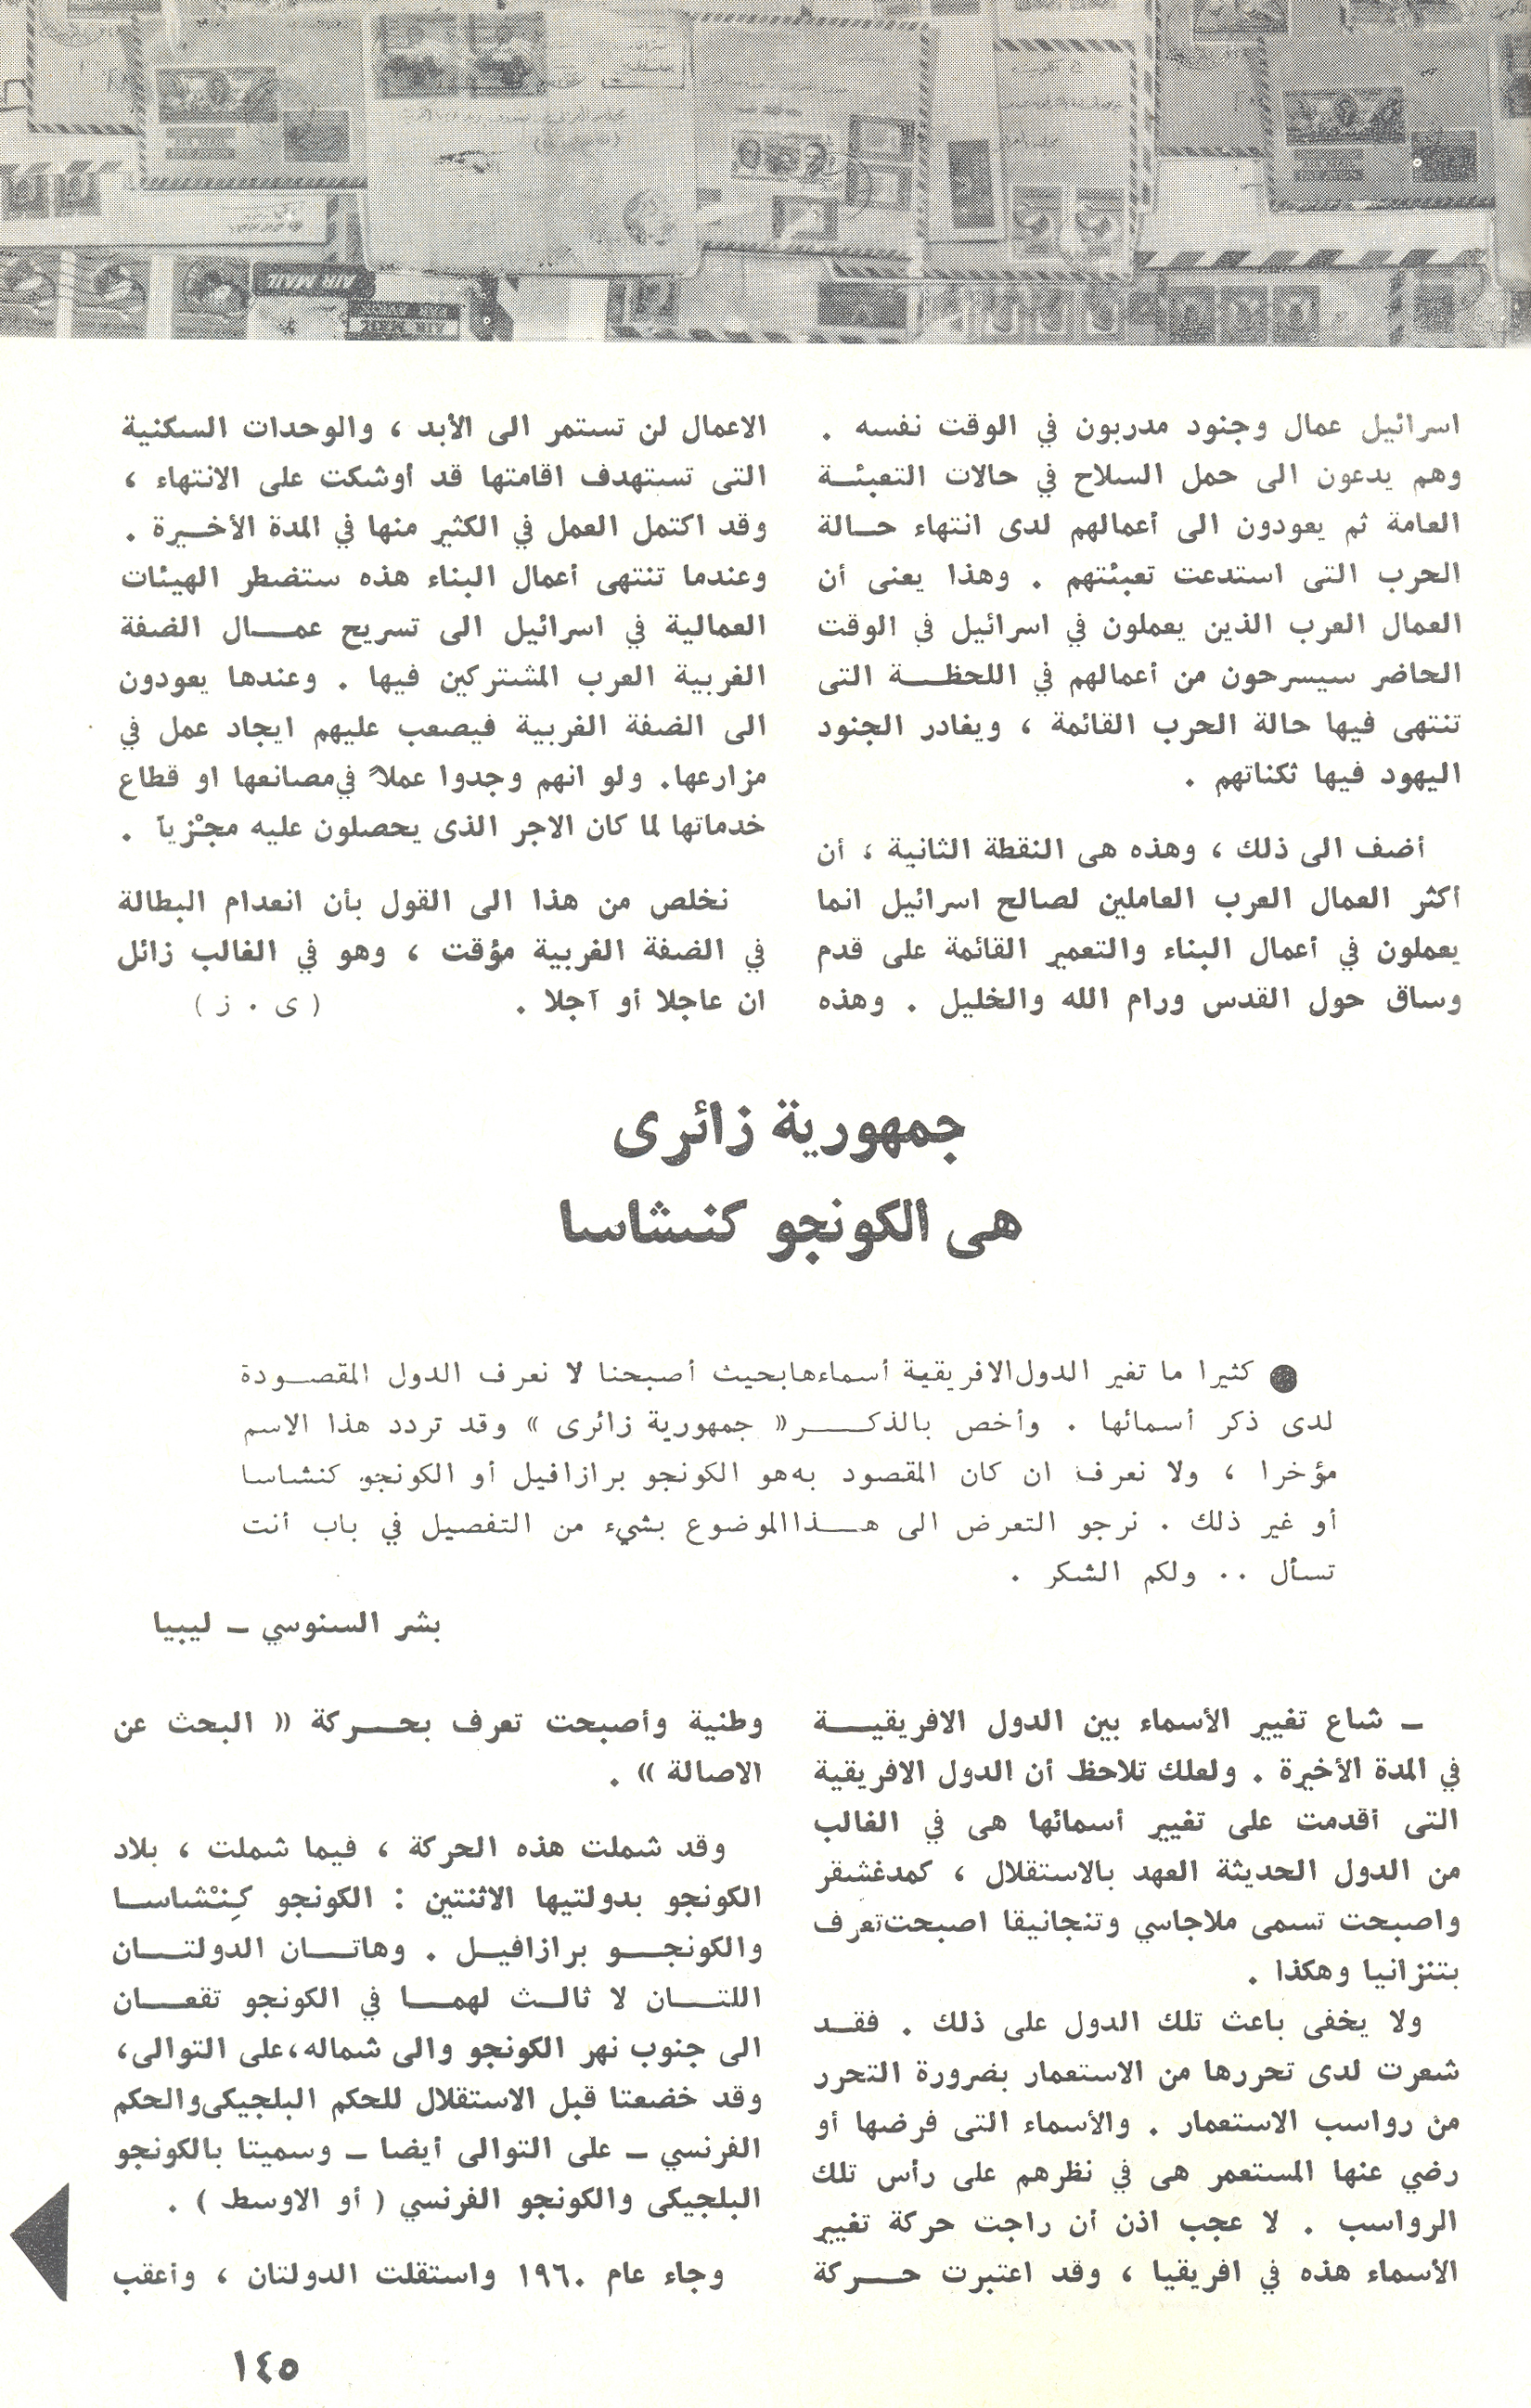 AIR MAIL
AIR MAIL
PAR AVION
اسرائيل عمال وجنود مدربون في الوقت نفسه .
وهم يدعون الى حمل السلاح في حالات التعبئـة
العامة ثم يعودون الى أعمالهم لدى انتهاء حـالة
الحرب التى استدعت تعبئتهم . وهذا يعنى أن
العمال العرب الذين يعملون في اسرائيل في الوقت
الحاضر سيسرحون من أعمالهم في اللحظـة التى
تنتهى فيها حالة الحرب القائمة ، ويغادر الجنود
اليهود فيها ثكناتهم .
أضف الى ذلك ، وهذه هى النقطة الثانية ، أن
أكثر العمال العرب العاملين لصالح اسرائيل انما
يعملون في أعمال البناء والتعمير القائمة على قدم
وساق حول القدس ورام الله والخليل . وهذه
الاعمال لن تستمر الى الأبد ، والوحدات السكنية
التى تستهدف اقامتها قد أوشكت على الانتهاء ،
وقد اكتمل العمل في الكثير منها في المدة الأخـيرة .
وعندما تنتهى أعمال البناء هذه ستضطر الهيئات
العمالية في اسرائيل الى تسريح عمـال الضفة
الغربية العرب المشتركين فيها . وعندها يعودون
الى الضفة الغربية فيصعب عليهم ايجاد عمل في
مزارعها. ولو انهم وجدوا عملاً في مصانعها او قطاع
خدماتها لما كان الاجر الذى يحصلون عليه مجْزياً .
نخلص من هذا الى القول بأن انعدام البطالة
في الضفة الغربية مؤقت ، وهو في الغالب زائل
ان عاجلا أو آجلا . ( ى . ز )
جمهورية زائرى
هى الكونجو كنشاسا
● كثيرا ما تغير الدول الافريقية أسماءها بحيث أصبحنا لا نعرف الدول المقصـودة
لدى ذكر أسمائها . وأخص بالذكـر « جمهورية زائرى » وقد تردد هذا الاسم
مؤخرا ، ولا نعرف ان كان المقصود به هو الكونجو برازافيل أو الكونجو كنشاسا
أو غير ذلك . نرجو التعرض الى هـذا الموضوع بشيء من التفصيل في باب أنت
تسأل .. ولكم الشكر .
بشر السنوسي ـ ليبيا
ـ شاع تغيير الأسماء بين الدول الافريقيـة
في المدة الأخيرة . ولعلك تلاحظ أن الدول الافريقية
التى أقدمت على تغيير أسمائها هى في الغالب
من الدول الحديثة العهد بالاستقلال ، كمدغشقر
واصبحت تسمى ملاجاسي وتنجانيقا اصبحت تعرف
بتنزانيا وهكذا .
ولا يخفى باعث تلك الدول على ذلك . فقـد
شعرت لدى تحررها من الاستعمار بضرورة التحرر
من رواسب الاستعمار . والأسماء التى فرضها أو
رضي عنها المستعمر هى في نظرهم على رأس تلك
الرواسب . لا عجب اذن أن راجت حركة تغيير
الأسماء هذه في افريقيا ، وقد اعتبرت حـركة
وطنية وأصبحت تعرف بحـركة « البحث عن
الاصالة » .
وقد شملت هذه الحركة ، فيما شملت ، بلاد
الكونجو بدولتيها الاثنتين : الكونجو كِنْشاسـا
والكونجـو برازافيـل . وهاتـان الدولتـان
اللتـان لا ثالـث لهمـا في الكونجو تقعـان
الى جنوب نهر الكونجو والى شماله ، على التوالى ،
وقد خضعتا قبل الاستقلال للحكم البلجيكى والحكم
الفرنسي ـ على التوالى أيضا ـ وسميتا بالكونجو
البلجيكى والكونجو الفرنسي ( أو الاوسط ) .
وجاء عام ١٩٦٠ واستقلت الدولتان ، وأعقب
١٤٥